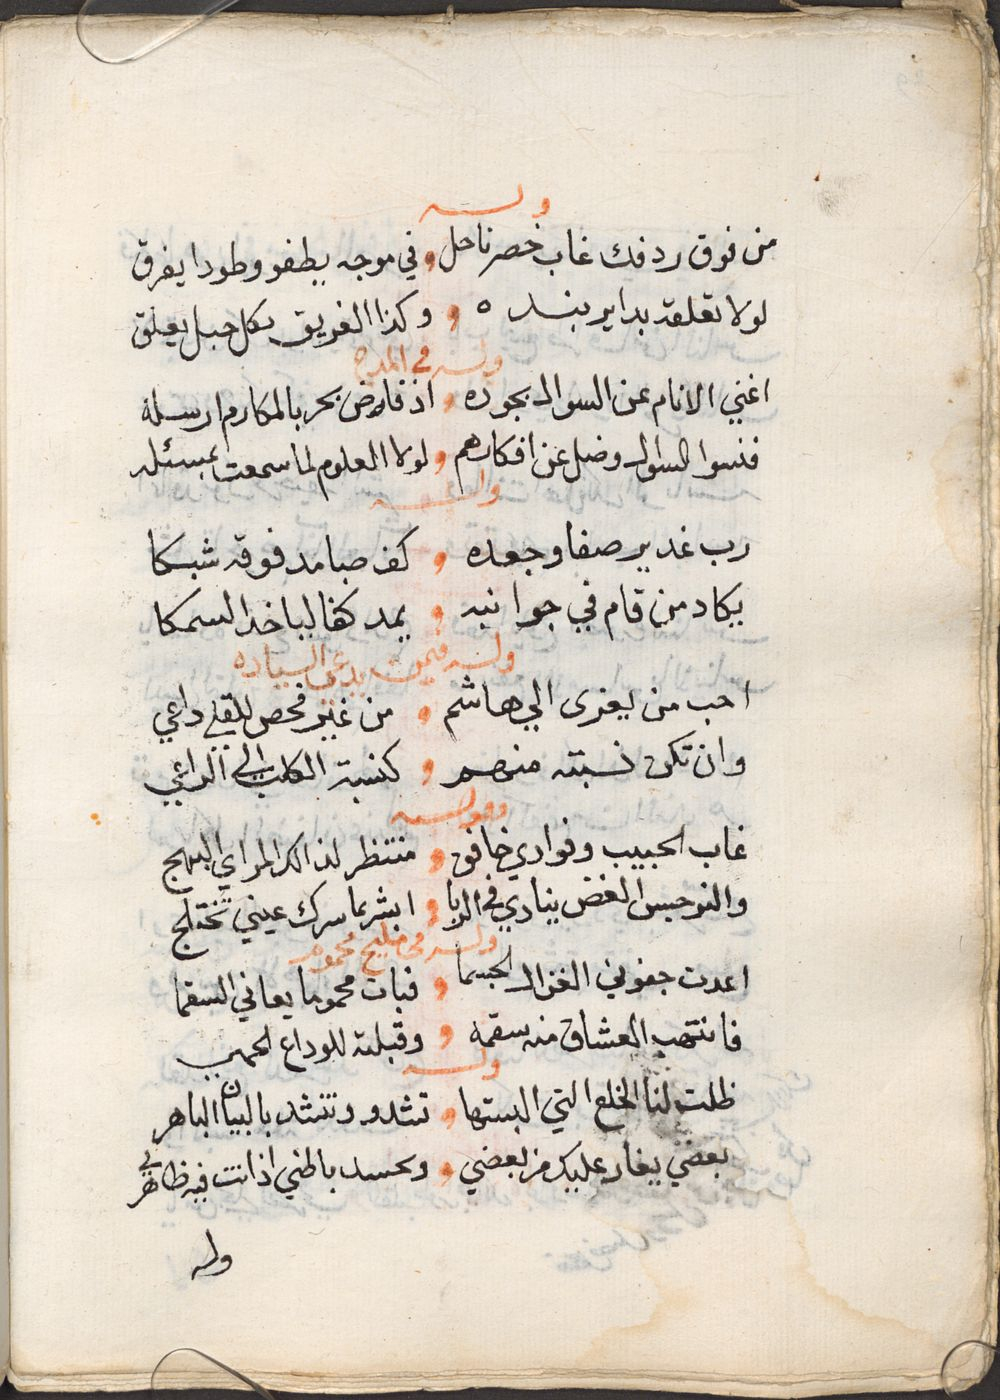 وله
من فوق ردفك غاب خصر ناحل و في موجه يطفو وطورا يغرق
لولا تعلقه بداير بنده و وكذا الغريق بكل حبل يعلق
وله في المدح
اغني الانام عن السوال بجوده و اذ فاض بحر بالمكارم ارسله
فنسوا السوال وضل عن افكارهم و لولا العلوم لما سمعت بمسئله
وله
رب غدير صفا وجعده و كف صبا مد فوقه شبكا
يكاد من قام في جوانبه و يمد كفا لياخذ السمكا
وله فيمن يدعى السياده
احب من يعزى الي هاشم و من غير فحص للقلي داعي
وان تكن نسبته منهم و كنسبة الكلب الى الراعي
وله
غاب الحبيب وفوادي خافق و منتظر لذالك المراي البهج
والنرجس الغض ينادي في الربا و ابشر بما سرك عيني تختلج
وله في مليح محموم
اعدت جفوني الغزال الجسما و فبات محموما يعاني السقما
فانتهب العشاق منه سقمه و وقبلته للوداع الحمى
وله
ظلت لنا الخلع التي البستها و تشدو وتنشد بالبيان الباهر
بعضي يغار عليك من بعضي و ويحسد باطني اذ انت فيه ظاهري
وله